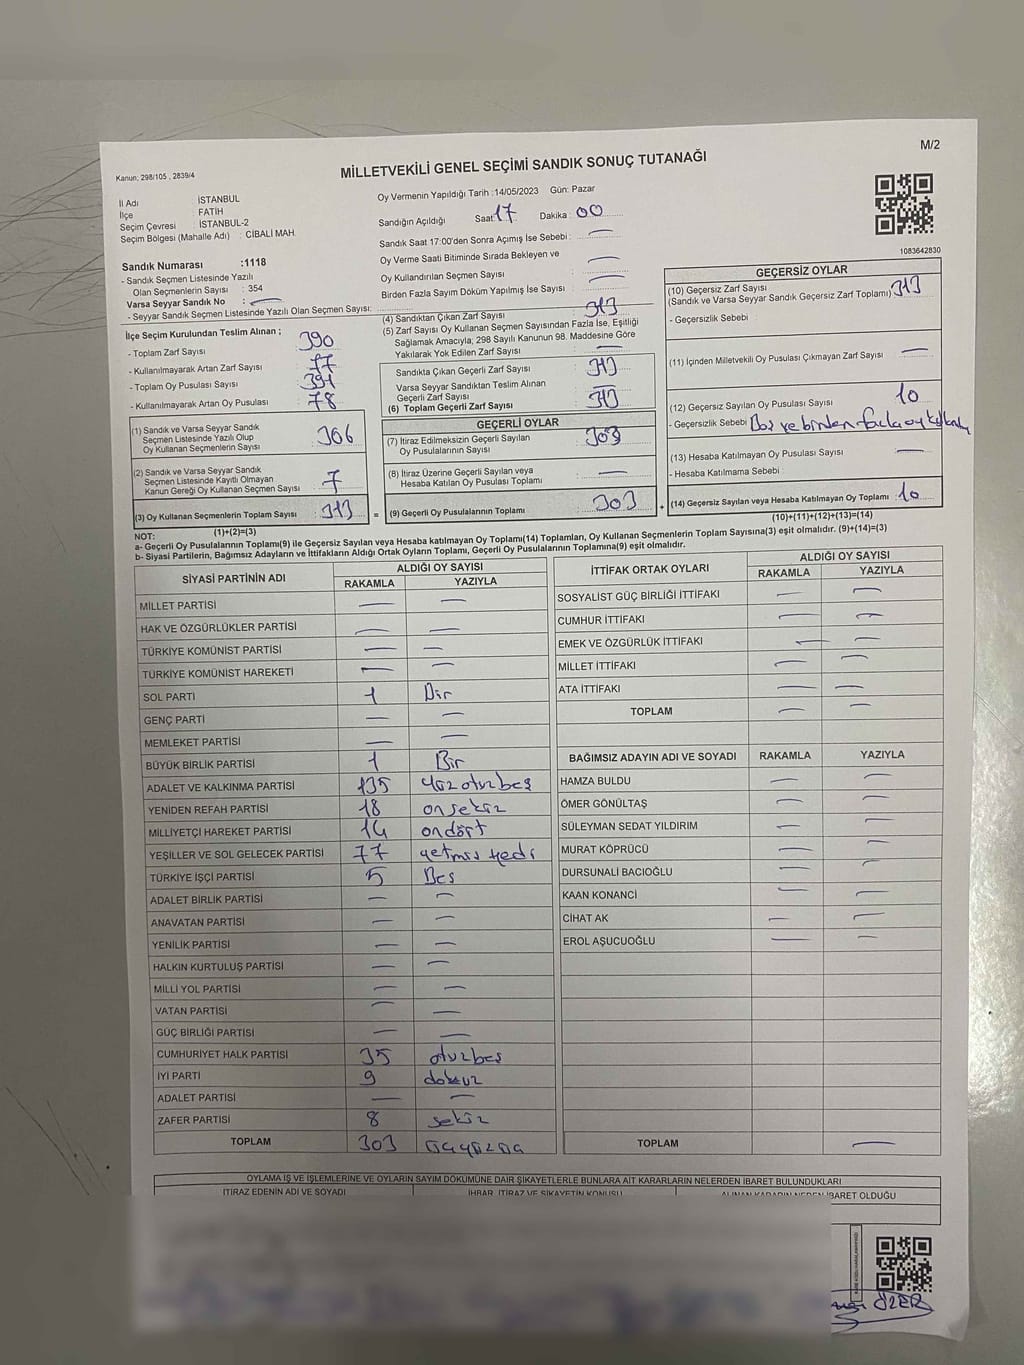 M/2
Kanun: 298/105 , 2839/4
MİLLETVEKİLİ GENEL SEÇİMİ SANDIK SONUÇ TUTANAĞI
İl Adı İSTANBUL
İlçe : FATİH
Seçim Çevresi : İSTANBUL-2
Seçim Bölgesi (Mahalle Adı) : CİBALİ MAH.
Oy Vermenin Yapıldığı Tarih :14/05/2023 Gün: Pazar
Sandığın Açıldığı Saat:17 Dakika : 00
Sandık Saat 17:00'den Sonra Açımış İse Sebebi : —
Oy Verme Saati Bitiminde Sırada Bekleyen ve
Oy Kullandırılan Seçmen Sayısı : —
Birden Fazla Sayım Döküm Yapılmış İse Sayısı : —
1083642830
Sandık Numarası :1118
- Sandık Seçmen Listesinde Yazılı
Olan Seçmenlerin Sayısı : 354
Varsa Seyyar Sandık No : —
- Seyyar Sandık Seçmen Listesinde Yazılı Olan Seçmen Sayısı:
İlçe Seçim Kurulundan Teslim Alınan ;
- Toplam Zarf Sayısı : 390
- Kullanılmayarak Artan Zarf Sayısı : 77
- Toplam Oy Pusulası Sayısı : 391
- Kullanılmayarak Artan Oy Pusulası : 78
(1) Sandık ve Varsa Seyyar Sandık
Seçmen Listesinde Yazılı Olup
Oy Kullanan Seçmenlerin Sayısı : 306
(2) Sandık ve Varsa Seyyar Sandık
Seçmen Listesinde Kayıtlı Olmayan
Kanun Gereği Oy Kullanan Seçmen Sayısı : 7
(3) Oy Kullanan Seçmenlerin Toplam Sayısı : 313
(1)+(2)=(3)
(4) Sandıktan Çıkan Zarf Sayısı : 313
(5) Zarf Sayısı Oy Kullanan Seçmen Sayısından Fazla İse, Eşitliği
Sağlamak Amacıyla; 298 Sayılı Kanunun 98. Maddesine Göre
Yakılarak Yok Edilen Zarf Sayısı : —
Sandıkta Çıkan Geçerli Zarf Sayısı : 313
Varsa Seyyar Sandıktan Teslim Alınan
Geçerli Zarf Sayısı : —
(6) Toplam Geçerli Zarf Sayısı : 313
GEÇERLİ OYLAR
(7) İtiraz Edilmeksizin Geçerli Sayılan
Oy Pusulasının Sayısı : 303
(8) İtiraz Üzerine Geçerli Sayılan veya
Hesaba Katılan Oy Pusulası Toplamı : —
= (9) Geçerli Oy Pusulalarının Toplamı : 303
GEÇERSİZ OYLAR
(10) Geçersiz Zarf Sayısı
(Sandık ve Varsa Seyyar Sandık Geçersiz Zarf Toplamı) : 313
- Geçersizlik Sebebi
(11) İçinden Milletvekili Oy Pusulası Çıkmayan Zarf Sayısı : —
(12) Geçersiz Sayılan Oy Pusulası Sayısı : 10
- Geçersizlik Sebebi : Boş ve birden fazla oy
(13) Hesaba Katılmayan Oy Pusulası Sayısı : —
- Hesaba Katılmama Sebebi :
+ (14) Geçersiz Sayılan veya Hesaba Katılmayan Oy Toplamı : 10
(10)+(11)+(12)+(13)=(14)
NOT:
a- Geçerli Oy Pusulalarının Toplamı(9) ile Geçersiz Sayılan veya Hesaba katılmayan Oy Toplamı(14) Toplamları, Oy Kullanan Seçmenlerin Toplam Sayısına(3) eşit olmalıdır. (9)+(14)=(3)
b- Siyasi Partilerin, Bağımsız Adayların ve İttifakların Aldığı Ortak Oyların Toplamı, Geçerli Oy Pusulalarının Toplamına(9) eşit olmalıdır.
SİYASİ PARTİNİN ADI ALDIĞI OY SAYISI
RAKAMLA YAZIYLA
MİLLET PARTİSİ — —
HAK VE ÖZGÜRLÜKLER PARTİSİ — —
TÜRKİYE KOMÜNİST PARTİSİ — —
TÜRKİYE KOMÜNİST HAREKETİ — —
SOL PARTİ 1 Bir
GENÇ PARTİ — —
MEMLEKET PARTİSİ — —
BÜYÜK BİRLİK PARTİSİ 1 Bir
ADALET VE KALKINMA PARTİSİ 135 yüz otuz beş
YENİDEN REFAH PARTİSİ 18 onsekiz
MİLLİYETÇİ HAREKET PARTİSİ 14 ondört
YEŞİLLER VE SOL GELECEK PARTİSİ 77 yetmiş yedi
TÜRKİYE İŞÇİ PARTİSİ 5 Beş
ADALET BİRLİK PARTİSİ — —
ANAVATAN PARTİSİ — —
YENİLİK PARTİSİ — —
HALKIN KURTULUŞ PARTİSİ — —
MİLLİ YOL PARTİSİ — —
VATAN PARTİSİ — —
GÜÇ BİRLİĞİ PARTİSİ — —
CUMHURİYET HALK PARTİSİ 35 otuzbeş
İYİ PARTİ 9 dokuz
ADALET PARTİSİ — —
ZAFER PARTİSİ 8 sekiz
TOPLAM 303 üçyüzüç
İTTİFAK ORTAK OYLARI ALDIĞI OY SAYISI
RAKAMLA YAZIYLA
SOSYALİST GÜÇ BİRLİĞİ İTTİFAKI — —
CUMHUR İTTİFAKI — —
EMEK VE ÖZGÜRLÜK İTTİFAKI — —
MİLLET İTTİFAKI — —
ATA İTTİFAKI — —
TOPLAM — —
BAĞIMSIZ ADAYIN ADI VE SOYADI RAKAMLA YAZIYLA
HAMZA BULDU — —
ÖMER GÖNÜLTAŞ — —
SÜLEYMAN SEDAT YILDIRIM — —
MURAT KÖPRÜCÜ — —
DURSUNALİ BACIOĞLU — —
KAAN KONANCİ — —
CİHAT AK — —
EROL AŞUCUOĞLU — —
TOPLAM —
OYLAMA İŞ VE İŞLEMLERİNE VE OYLARIN SAYIM DÖKÜMÜNE DAİR ŞİKAYETLERLE BUNLARA AİT KARARLARIN NELERDEN İBARET BULUNDUKLARI
İTİRAZ EDENİN ADI VE SOYADI İHBAR, İTİRAZ VE ŞİKAYETİN KONUSU ALINAN KARARIN NEDEN İBARET OLDUĞU
ÖZER